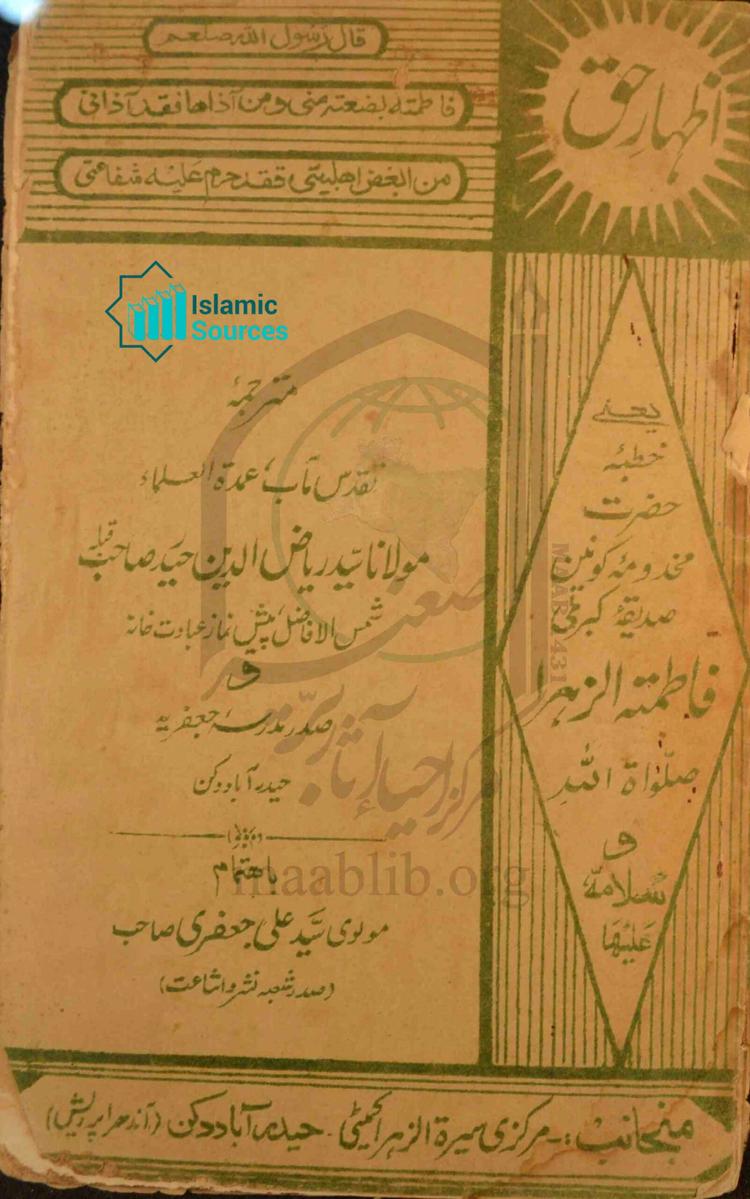 اظہارِ حق
قال رسول اللہ صلعم
فاطمتہ بضعتہ منی و من آذاھا فقد آذانی
من البغض اھلبیتی فقد حرم علیہ شفاعتی
یعنے
خطبۂ
حضرت
مخدومۂ کونین
صدیقۂ کبریٰ
فاطمتہ الزھرا
صلواۃ اللہِ
و
سلامہٗ
عَلیہَا
Islamic
Sources
مترجمۂ
تقدس مآب، عمدۃ العلماء
مولانا سید ریاض الدین حیدر صاحب قبلہ
شمس الافاضل، پیش نماز عبادت خانہ
و
صدر مدرسۂ جعفریہ
حیدرآباد دکن
باہتمام
مولوی سید علی جعفری صاحب
(صدر شعبہ نشر و اشاعت)
منجانب:۔ مرکزی سیرۃ الزہرا کمیٹی۔ حیدرآباد دکن (آندھرا پردیش)
مرکز احیاء آثار
maablib.org